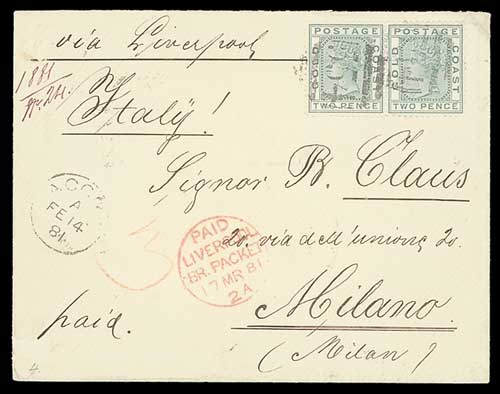 via Liverpool
POSTAGE
GOLD COAST
TWO PENCE
POSTAGE
GOLD COAST
TWO PENCE
1881
Italy!
Signor B. Claus
20. via dell'unione 20.
Milano
(Milan)
ACC
A
FE 14
81
3
PAID
LIVERPOOL
BR. PACKET
17 MR 81
2A
paid.
4